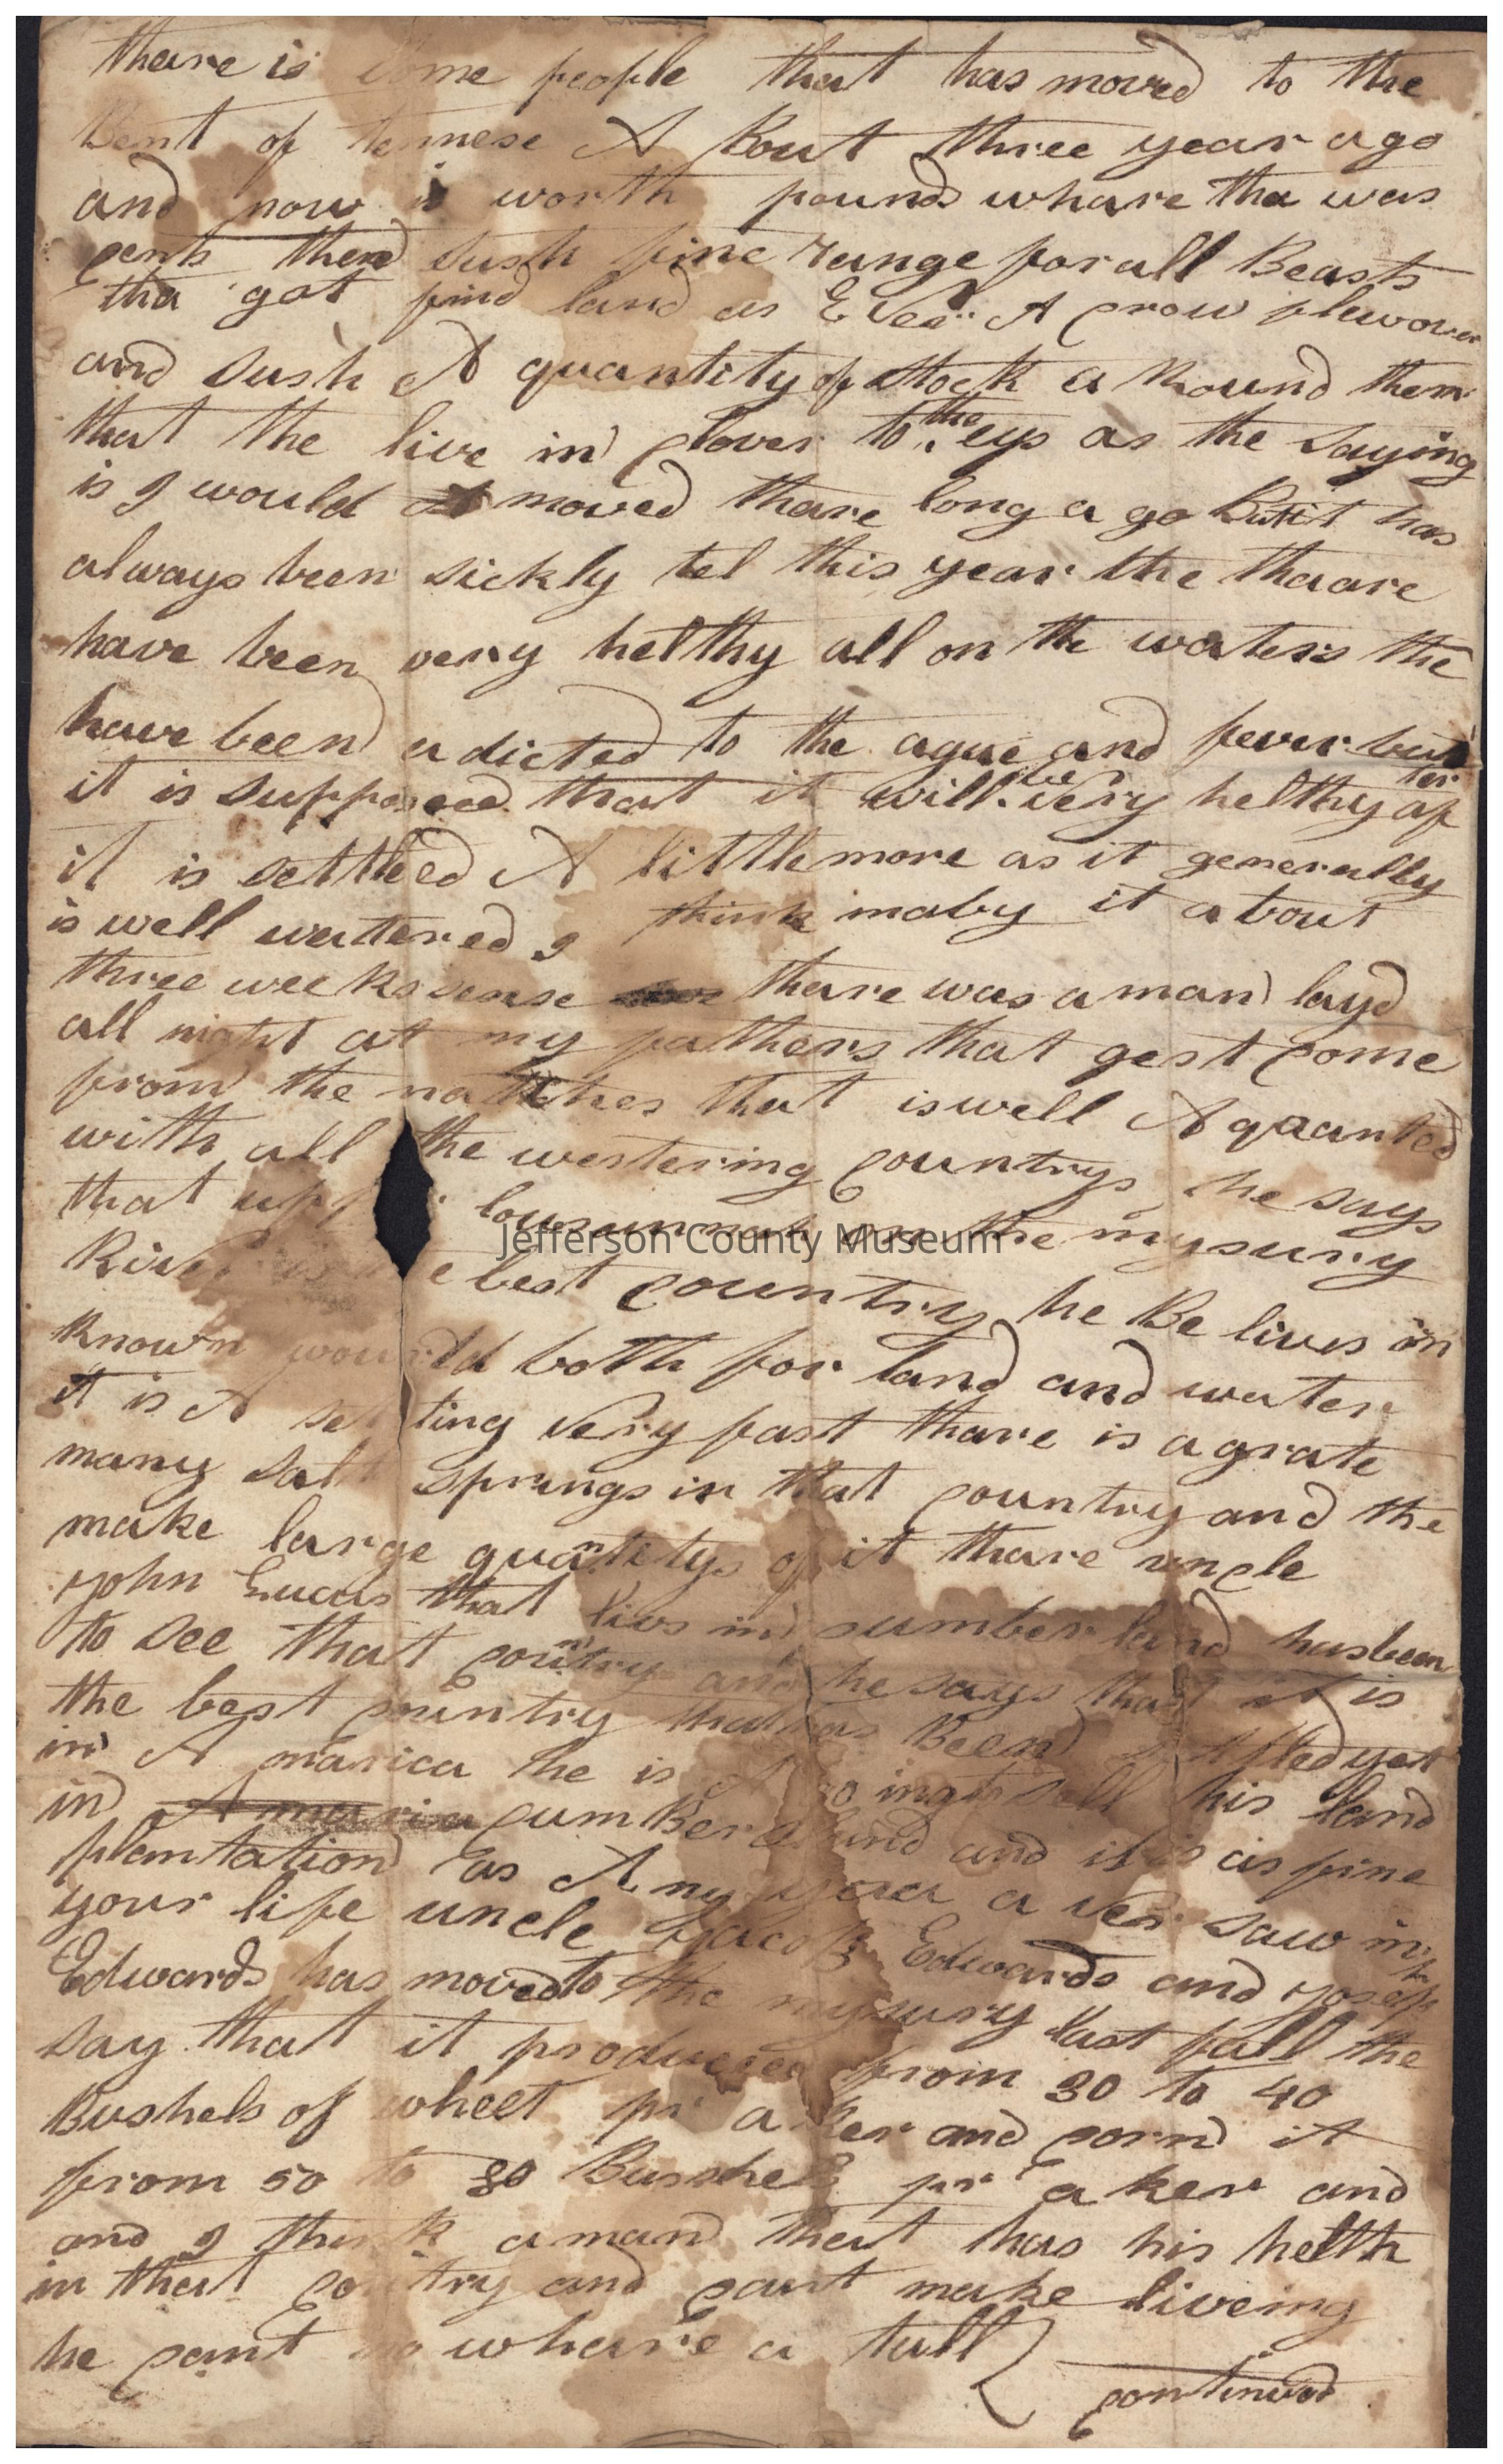 thare is some people that has moved to the
Bent of tennese A Bout three year ago
and now is worth pounds whare tha was
cents then Sush fine range for all Beasts
tha got find land as Ever A Crow
and sush A quantity of stock a Round them
that the live in Clover to the eys as the saying
is I would moved thare long a go But it has
always been sickly tel this year the thaare
have been very helthy all on the waters the
have been adicted to the ague and fever but
it is supposeed that it will be very helthy after
it is settleed A little more as it generally
is well wattered I think maby it about
three weeks sense thare was a man layd
all night at my fathers that gest Come
from the nattches that is well A quaanted
with all the westering Countrys he says
that upper on the mysury
River is the best Country he Be lives in
known would both for land and water
it is A setting very fast thare is a grate
many salt springs in that Country and the
make large quantetys of it thare uncle
John Lucas that livs in Cumberland has been
to see that Country and he says that it is
the best Country that has Been settled yet
in A marica he is A go ing to sell his land
in Cum Berland and it is as fine
plantation as A ny you a ver saw in
your life uncle Jacob Edwards and Joseph
Edwards has moved to the mysury last fall the
say that it produces from 30 to 40
Bushels of wheet pr aker and Corn it
from 50 to 80 Busshels pr a ker and
and I think a man that has his helth
in that Country and Cant make liveing
he Cant no whare a tall
Continued
Jefferson County Museum